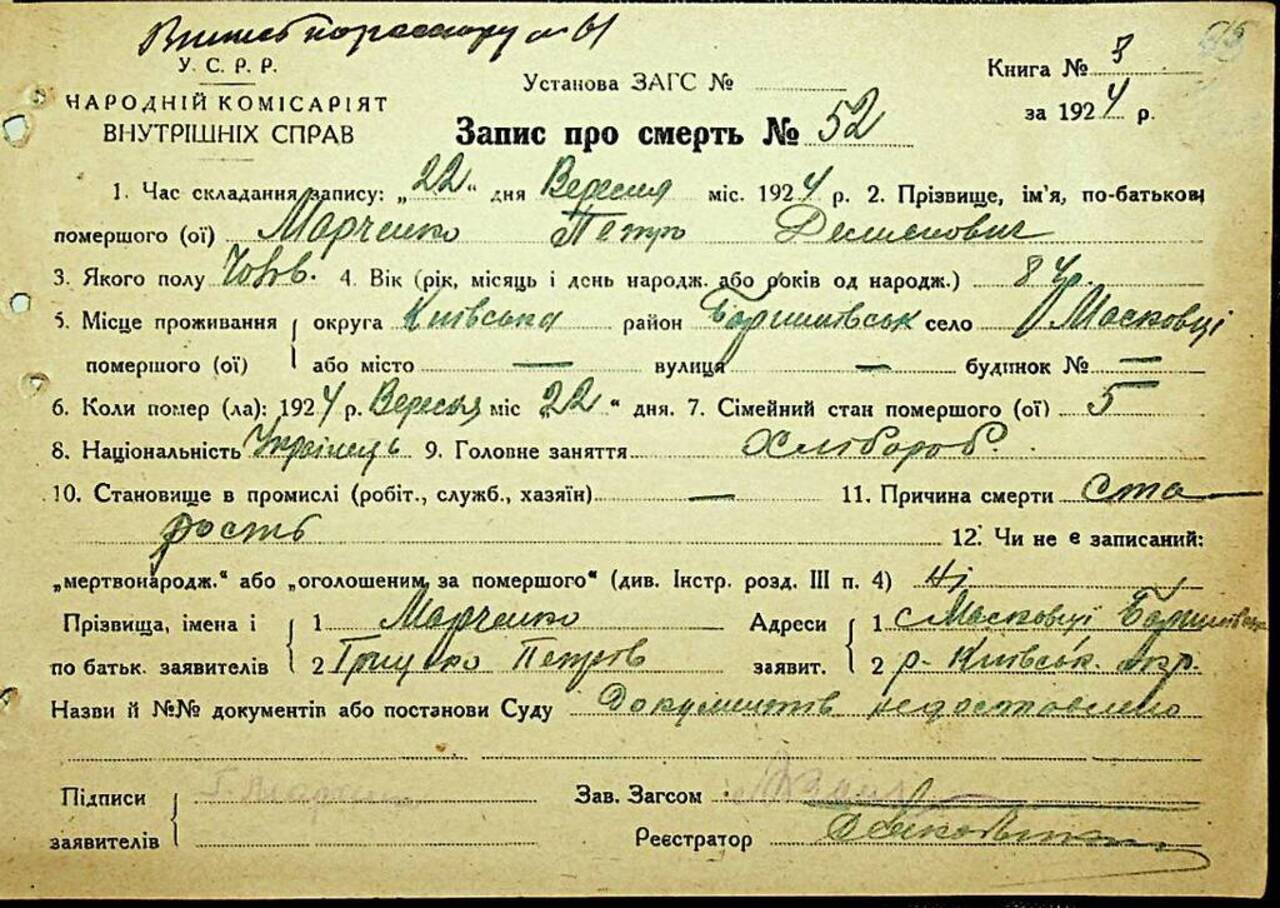 У. С. Р. Р.
НАРОДНІЙ КОМІСАРІЯТ
ВНУТРІШНІХ СПРАВ
Установа ЗАГС №
Книга № 3
за 1924 р.
Запис про смерть № 52
1. Час складання запису: „22“ дня Вересня міс. 1924 р. 2. Прізвище, ім'я, по-батькові
помершого (ої) Марченко Петро
3. Якого полу Чолв. 4. Вік (рік, місяць і день народж. або років од народж.) 84р.
5. Місце проживання округа Київська район Баришівськ село Масковці
помершого (ої) або місто — вулиця — будинок № —
6. Коли помер (ла): 1924 р. Вересня міс „22“ дня. 7. Сімейний стан помершого (ої) 5
8. Національність Українець 9. Головне заняття Хлібороб.
10. Становище в промислі (робіт., служб., хазяїн) — 11. Причина смерти ста
рость 12. Чи не є записаний:
„мертвонародж.“ або „оголошеним за помершого“ (див. Інстр. розд. III п. 4) Ні
Прізвища, імена і 1 Марченко Адреси 1 с Масковці
по батьк. заявителів 2 Грицько Петров заявит. 2 р. Київськ. окр.
Назви й №№ документів або постанови Суду Документів недоставлено
Підписи Зав. Загсом
заявителів Реєстратор